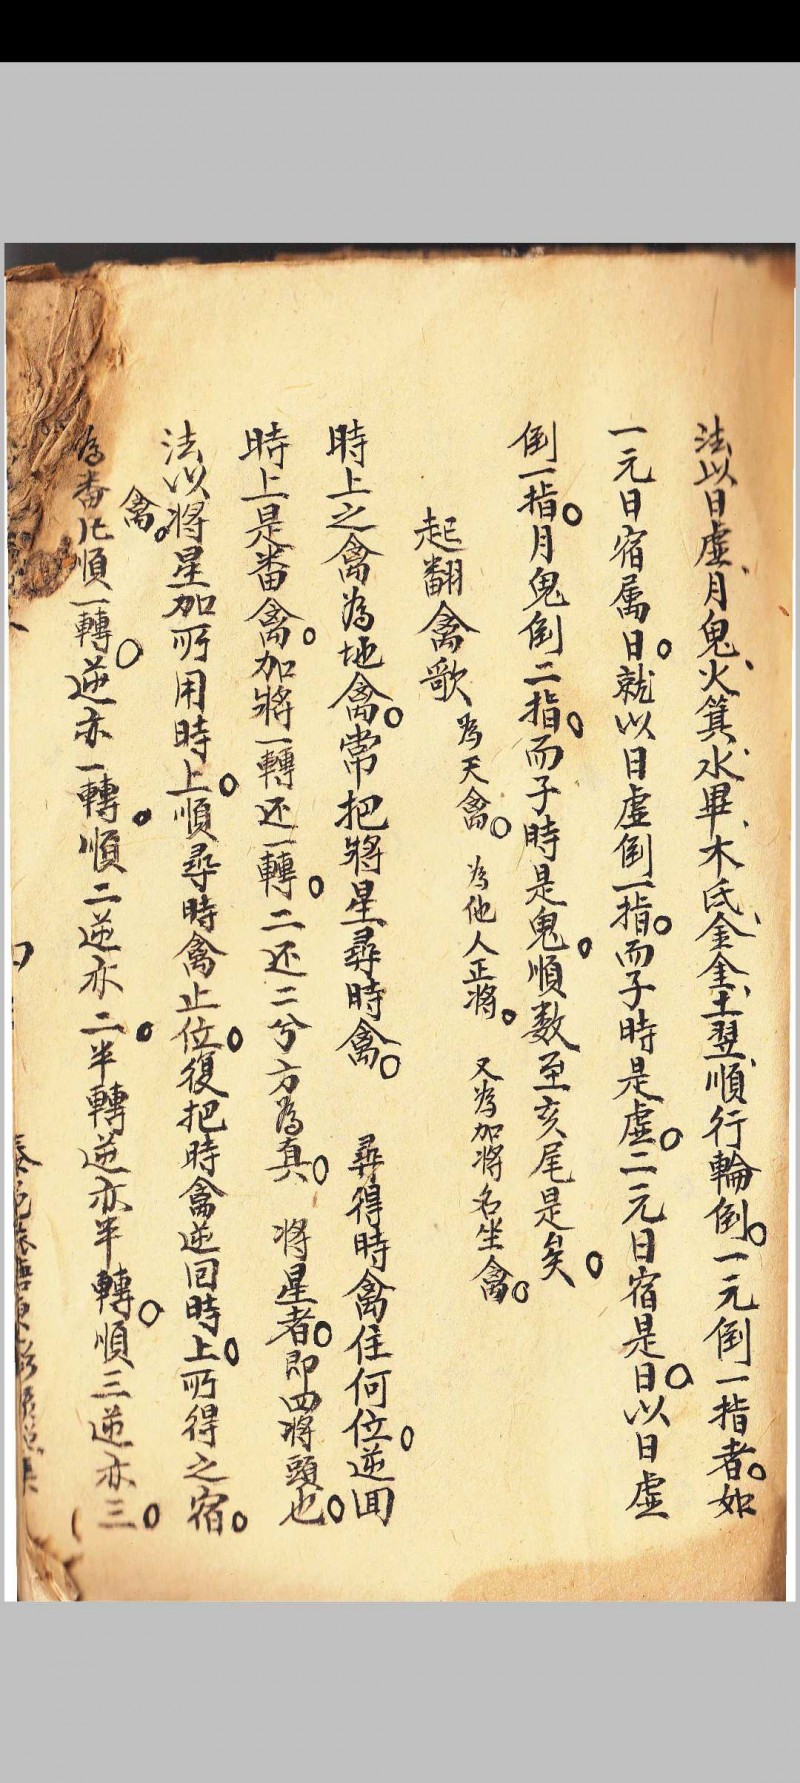 法以日虛、月鬼、火箕、水畢、木氐、金奎、土翌、順行輪倒。一元倒一指者。如
一元日宿属日。就以日虛倒一指。而子時是虛。二元日宿是日。以日虛
倒一指。月鬼倒二指。而子時是鬼。順數至亥尾是矣。
起翻禽歌 為天禽。 為他人正將。 又為加將名坐禽。
時上之禽為地禽。常把將星尋時禽。 尋得時禽住何位。逆回
時上是番禽。加將一轉还一轉。二还二兮方為真。 將星者。即四將頭也。
法以將星加所用時上。順尋時禽止位。復把時禽逆回時上。所得之宿。
為番禽。凡順一轉。逆亦一轉。順二逆亦二。半轉逆亦半轉。順三逆亦三。